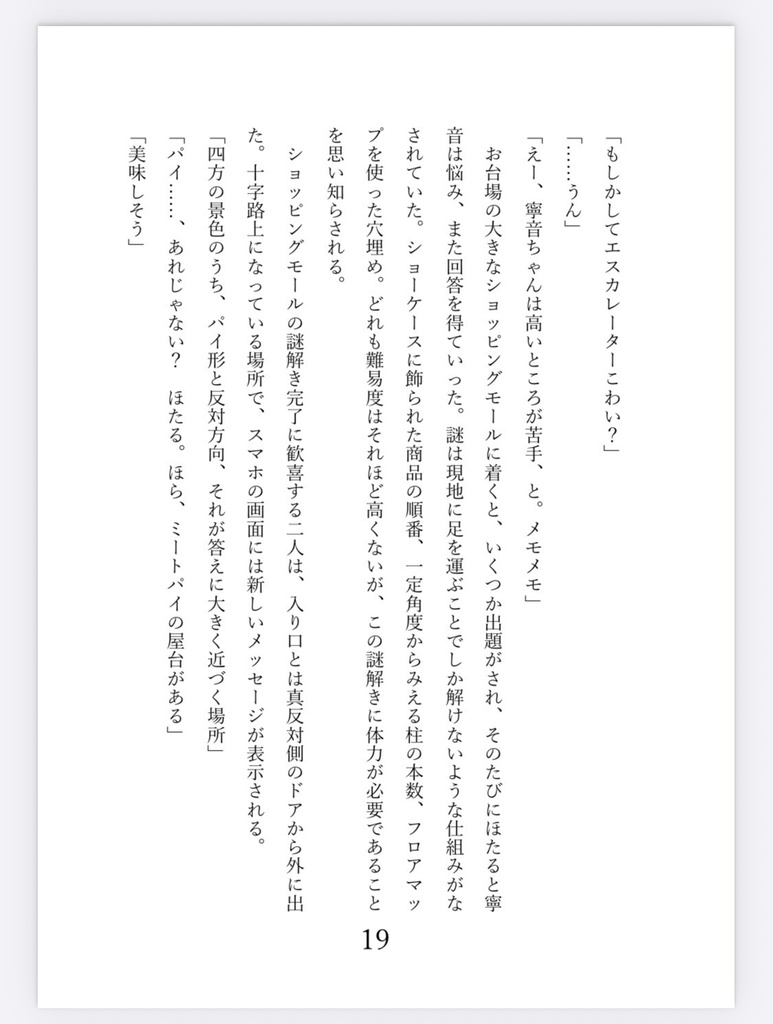 「もしかしてエスカレーターこわい？」
「……うん」
「えー、寧音ちゃんは高いところが苦手、と。メモメモ」
　お台場の大きなショッピングモールに着くと、いくつか出題がされ、そのたびにほたると寧
音は悩み、また回答を得ていった。謎は現地に足を運ぶことでしか解けないような仕組みがな
されていた。ショーケースに飾られた商品の順番、一定角度からみえる柱の本数、フロアマッ
プを使った穴埋め。どれも難易度はそれほど高くないが、この謎解きに体力が必要であること
を思い知らされる。
　ショッピングモールの謎解き完了に歓喜する二人は、入り口とは真反対側のドアから外に出
た。十字路上になっている場所で、スマホの画面には新しいメッセージが表示される。
「四方の景色のうち、パイ形と反対方向、それが答えに大きく近づく場所」
「パイ……、あれじゃない？　ほたる。ほら、ミートパイの屋台がある」
「美味しそう」
19